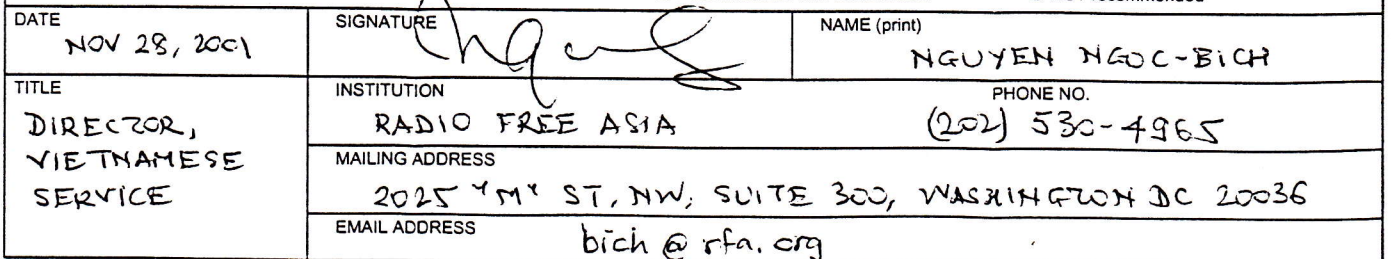 recommended
DATE
NOV 28, 2001
SIGNATURE
NAME (print)
NGUYEN NGOC-BICH
TITLE
DIRECTOR,
VIETNAMESE
SERVICE
INSTITUTION
RADIO FREE ASIA
PHONE NO.
(202) 530-4965
MAILING ADDRESS
2025 "M" ST, NW, SUITE 300, WASHINGTON DC 20036
EMAIL ADDRESS
bich @ rfa.org